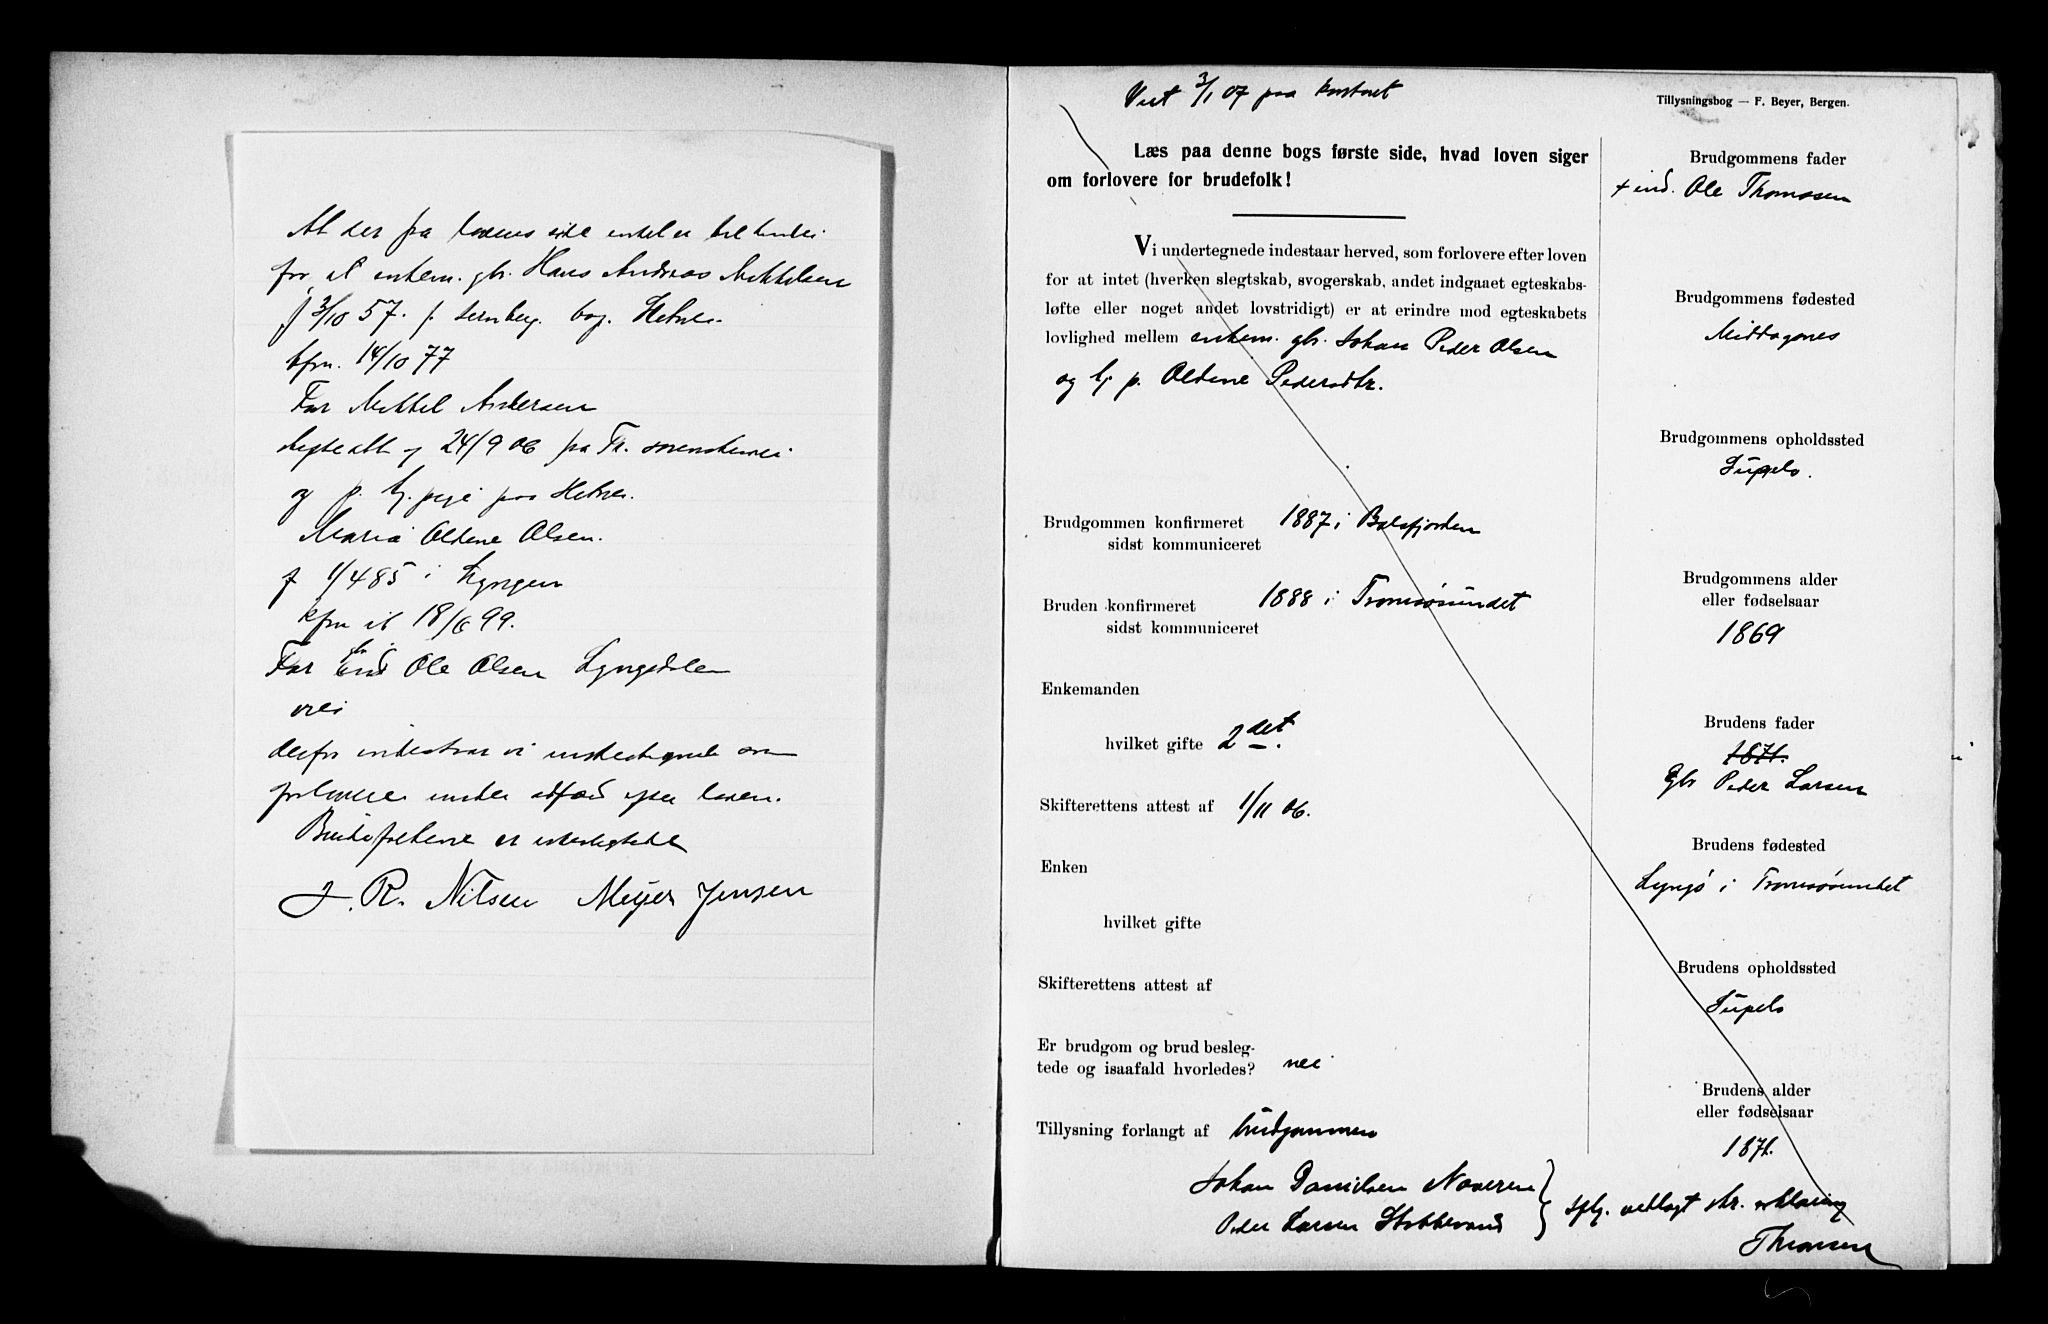 At der fra lovens side intet er til hinder
for, at enkem. gbr. Hans Andreas Mikkelsen
f 3/10 57. p.
kfm. 14/10 77
Far Mikkel Andersen
24/9 06 fra Tr. sorenskriveri
og p. hj. pige paa
Maria Oldene Olsen.
f 1/4 85 i Lyngen
kfm it 18/6 99.
Far Ole Olsen Lyngsdalen
nei
derfor indestaar vi undertegnede som
forlovere under ansvar efter loven.
Brudefolkene er ubeslegtede
J. R. Nilsen Meyer Jensen
Viet 3/1 07 paa kontoret
Tillysningsbog — F. Beyer, Bergen.
Læs paa denne bogs første side, hvad loven siger
om forlovere for brudefolk!
Vi undertegnede indestaar herved, som forlovere efter loven
for at intet (hverken slegtskab, svogerskab, andet indgaaet egteskabs-
løfte eller noget andet lovstridigt) er at erindre mod egteskabets
lovlighed mellem enkem. gbr. Johan Peder Olsen
og hj p. Oldene Pedersdtr.
Brudgommen konfirmeret 1887 i Balsfjorden
sidst kommuniceret
Bruden konfirmeret 1888 i Tromsøsundet
sidst kommuniceret
Enkemanden
hvilket gifte 2det.
Skifterettens attest af 1/11 06.
Enken
hvilket gifte
Skifterettens attest af
Er brudgom og brud besleg-
tede og isaafald hvorledes? nei
Tillysning forlangt af brudgommen
Johan Danielsen Naveren
Peder Larsen Stobbevand
iflg. vedlagt skr. erklæring
Thomsen
Brudgommens fader
+ ind. Ole Thomasen
Brudgommens fødested
Middagsnes
Brudgommens opholdssted
Brudgommens alder
eller fødselsaar
1869
Brudens fader
1871.
Gbr Peder Larsen
Brudens fødested
Lyngø i Tromsøsundet
Brudens opholdssted
Brudens alder
eller fødselsaar
1871.